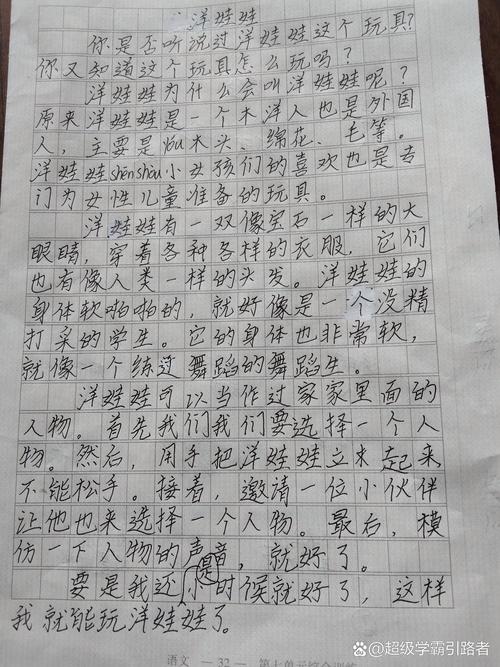 洋娃娃
你是否听说过洋娃娃这个玩具？
你又知道这个玩具怎么玩吗？
洋娃娃为什么会叫洋娃娃呢？
原来洋娃娃是一个木洋人也是外国
人，主要是yóu木头、绵花、毛等。
洋娃娃shēnshòu小女孩们的喜欢也是专
门为女性儿童准备的玩具。
洋娃娃有一双像宝石一样的大
眼睛，穿着各种各样的衣服，它们
也有像人类一样的头发。洋娃娃的
身体软啪啪的，就好像是一个没精
打采的学生。它的身体也非常软，
就像一个练过舞蹈的舞蹈生。
洋娃娃可以当作过家家里面的
人物。首先我们我们要选择一个人
物。然后，用手把洋娃娃立起来
不能松手。接着，邀请一位小伙伴
让他也来选择一个人物。最后，模
仿一下人物的声音，就好了。
要是我还是小时候就好了，这样
我就能玩洋娃娃了。
语文 — 32 — 第七单元综合训练
@超级学霸引路者